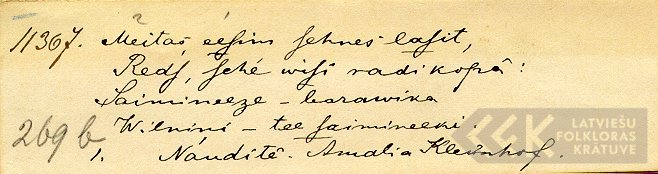 11367. Meitas eesim sehnes lasit,
Reds, sché wisi radi kopâ:
Saimineeze - barawika
Wilnini - tee saimineeki.
269 b
1. Naudîtê. Amalia Kleinhof.
LATVIEŠU
FOLKLORAS
KRĀTUVE